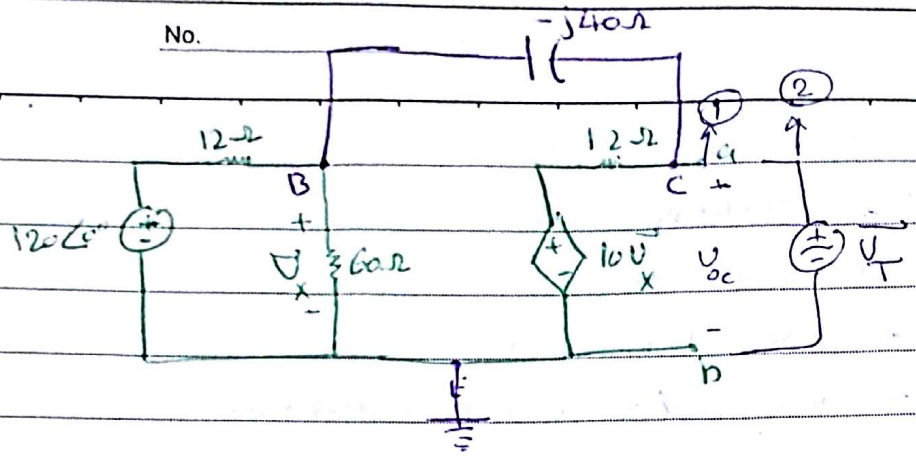 No.
-j40Ω
① ②
12Ω 12Ω
B C a
+ +
120∠0° + - V x 60Ω + - 10 V x V oc + V T
- -
D